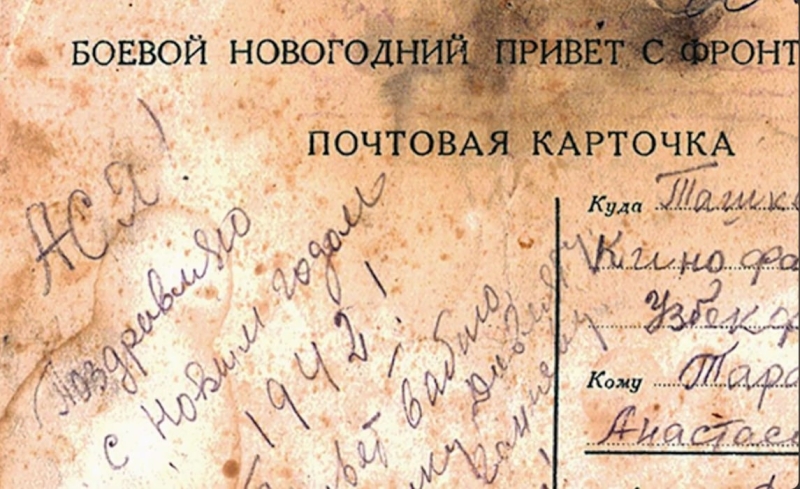 БОЕВОЙ НОВОГОДНИЙ ПРИВЕТ С ФРОНТ
ПОЧТОВАЯ КАРТОЧКА
АСЯ!
Поздравляю
с Новым годом
1942!
Куда Ташк
Кинофа
Узбек
Кому Тара
Анастас